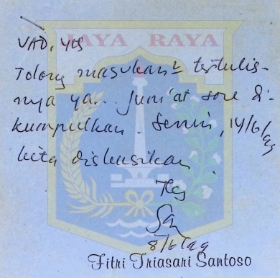 JAYA RAYA
Tolong masukan² tertulis-
nya ya.. Jum'at sore di-
kumpulkan. Senin, 14/6/99
kita diskusikan
8/6/99
Fitri Triasari Santoso